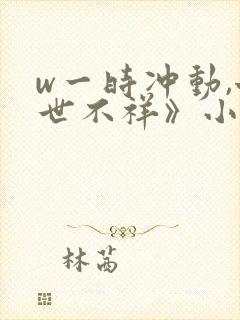 w一時冲動,
世不祥》小
林茜